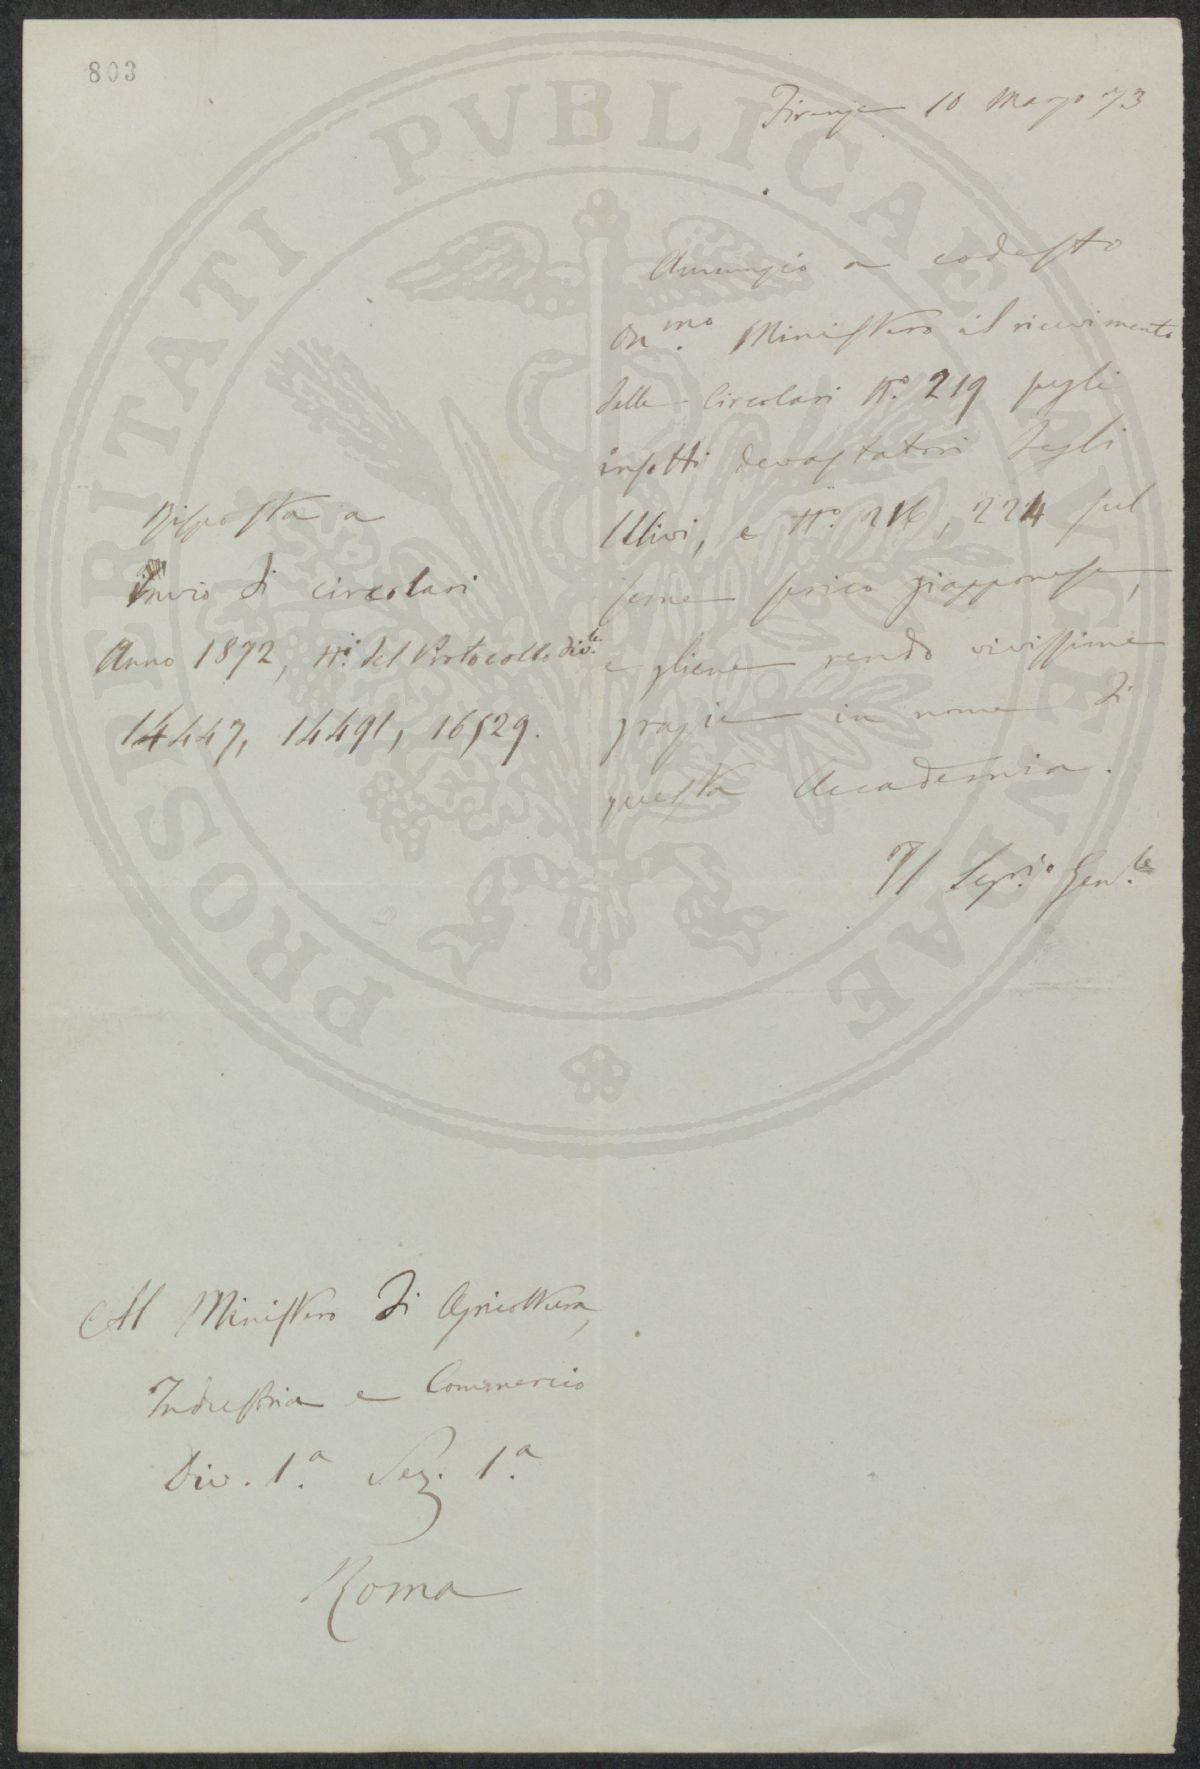 803
Firenze 16 Marzo 73
Annunzio a codesto
On.mo Ministero il ricevimento
delle Circolari No. 219 sugli
insetti devastatori degli
Ulivi, e No. 216, 224 sul
seme serico giapponese,
e gliene rendo vivissime
grazie in nome di
questa Accademia.
Il Segr.io Gen.le
Risposta a
invio di circolari
Anno 1872, Ni. del Protocollo Div.le
14447, 14491, 16529.
Al Ministero di Agricoltura,
Industria e Commercio
Div. 1.a Sez. 1.a
Roma
PROSPERITATI PVBLICAE AVGENDAE